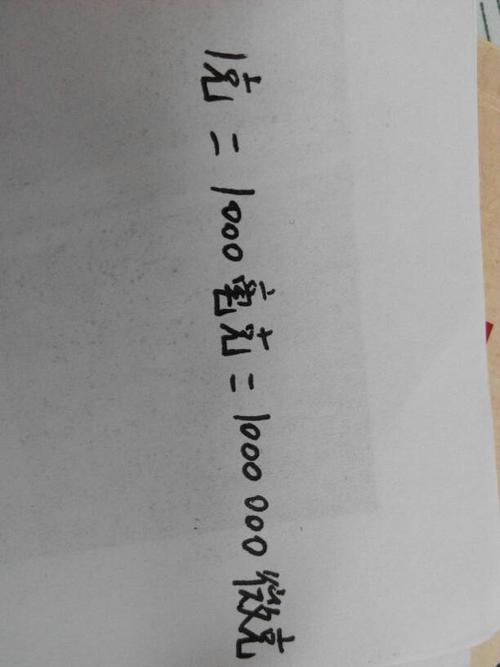 1克=1000毫克=1000000微克